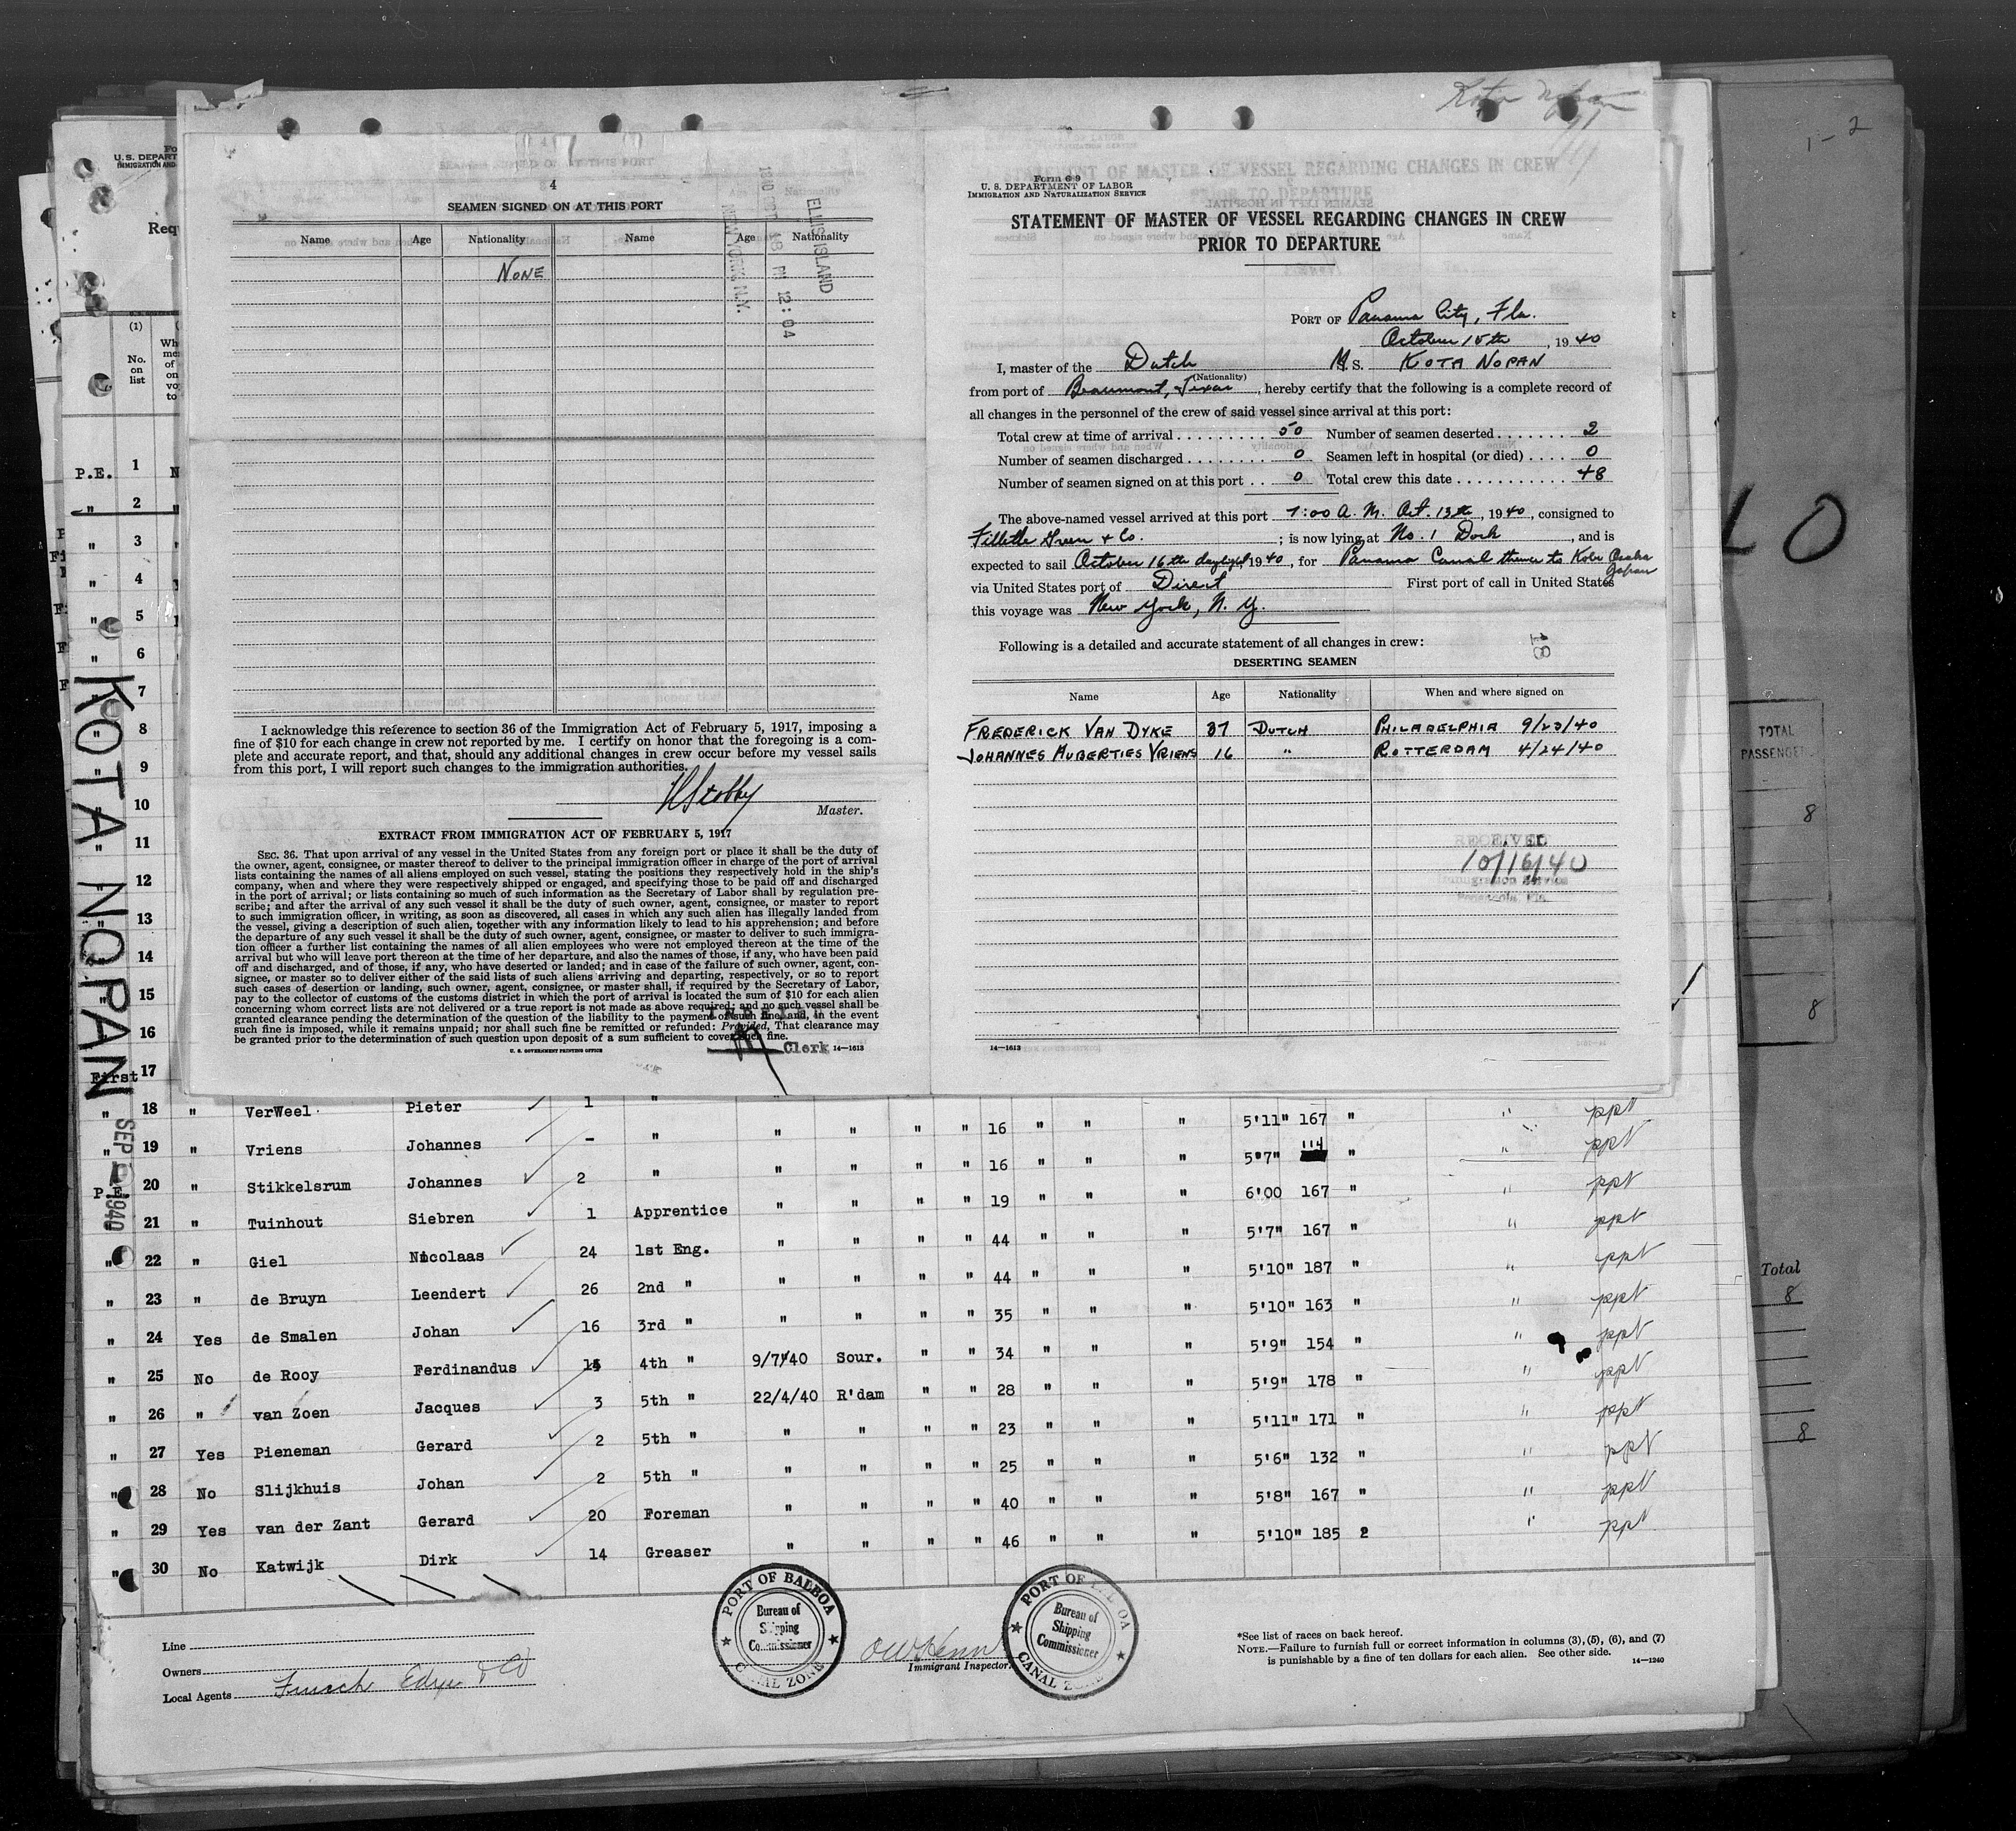 4
SEAMEN SIGNED ON AT THIS PORT
Name Age Nationality Name Age Nationality
NONE
ELLIS ISLAND
1940 OCT 18 PM 12:04
NEW YORK, N.Y.
I acknowledge this reference to section 36 of the Immigration Act of February 5, 1917, imposing a
fine of $10 for each change in crew not reported by me. I certify on honor that the foregoing is a com-
plete and accurate report, and that, should any additional changes in crew occur before my vessel sails
from this port, I will report such changes to the immigration authorities.
Master.
EXTRACT FROM IMMIGRATION ACT OF FEBRUARY 5, 1917
SEC. 36. That upon arrival of any vessel in the United States from any foreign port or place it shall be the duty of
the owner, agent, consignee, or master thereof to deliver to the principal immigration officer in charge of the port of arrival
lists containing the names of all aliens employed on such vessel, stating the positions they respectively hold in the ship's
company, when and where they were respectively shipped or engaged, and specifying those to be paid off and discharged
in the port of arrival; or lists containing so much of such information as the Secretary of Labor shall by regulation pre-
scribe; and after the arrival of any such vessel it shall be the duty of such owner, agent, consignee, or master to report
to such immigration officer, in writing, as soon as discovered, all cases in which any such alien has illegally landed from
the vessel, giving a description of such alien, together with any information likely to lead to his apprehension; and before
the departure of any such vessel it shall be the duty of such owner, agent, consignee, or master to deliver to such immigra-
tion officer a further list containing the names of all alien employees who were not employed thereon at the time of the
arrival but who will leave port thereon at the time of her departure, and also the names of those, if any, who have been paid
off and discharged, and of those, if any, who have deserted or landed; and in case of the failure of such owner, agent, con-
signee, or master so to deliver either of the said lists of such aliens arriving and departing, respectively, or so to report
such cases of desertion or landing, such owner, agent, consignee, or master shall, if required by the Secretary of Labor,
pay to the collector of customs of the customs district in which the port of arrival is located the sum of $10 for each alien
concerning whom correct lists are not delivered or a true report is not made as above required; and no such vessel shall be
granted clearance pending the determination of the question of the liability to the payment of such fine, and, in the event
such fine is imposed, while it remains unpaid; nor shall such fine be remitted or refunded: Provided, That clearance may
be granted prior to the determination of such question upon deposit of a sum sufficient to cover such fine.
U. S. GOVERNMENT PRINTING OFFICE Clerk 14—1613
Kota Nopan
Form 689
U. S. DEPARTMENT OF LABOR
IMMIGRATION AND NATURALIZATION SERVICE
STATEMENT OF MASTER OF VESSEL REGARDING CHANGES IN CREW
PRIOR TO DEPARTURE
PORT OF Panama City, Fla.
October 15th, 1940
I, master of the Dutch M. S. KOTA NOPAN
(Nationality)
from port of Beaumont, Texas, hereby certify that the following is a complete record of
all changes in the personnel of the crew of said vessel since arrival at this port:
Total crew at time of arrival 50 Number of seamen deserted 2
Number of seamen discharged 0 Seamen left in hospital (or died) 0
Number of seamen signed on at this port 0 Total crew this date 48
The above-named vessel arrived at this port 7:00 A. M. Oct. 13th, 1940, consigned to
Fillette Green & Co.; is now lying at No. 1 Dock, and is
expected to sail October 16th daylight, 1940, for Panama Canal thence to Kobe Osaka
Japan
via United States port of Direct First port of call in United States
this voyage was New York, N. Y.
18
Following is a detailed and accurate statement of all changes in crew:
DESERTING SEAMEN
Name Age Nationality When and where signed on
FREDERICK VAN DYKE 37 DUTCH PHILADELPHIA 9/23/40
JOHANNES HUBERTIES VRIENS 16 " ROTTERDAM 4/24/40
RECEIVED
10/16/40
Immigration Service
Pensacola, Fla.
14—1613
1-2
TOTAL
PASSENGERS
8
8
Total
8
8
U. S. DEPART
IMMIGRATION AND
Req
(1)
No.
on
list
KOTA NOPAN
SEP 1940
P.E. 1
" 2
" 3
" 4
" 5
" 6
7
" 8
" 9
" 10
" 11
" 12
" 13
" 14
" 15
" 16
First 17
" 18 " VerWeel Pieter 1 " " " " " 16 " " " 5'11" 167 " " ppt
" 19 " Vriens Johannes - " " " " " 16 " " " 5'7" 114 " " ppt
P.E. 20 " Stikkelsrum Johannes 2 " " " " " 19 " " " 6'00 167 " " ppt
" 21 " Tuinhout Siebren 1 Apprentice " " " " 44 " " " 5'7" 167 " " ppt
" 22 " Giel Nicolaas 24 1st Eng. " " " " 44 " " " 5'10" 187 " " ppt
" 23 " de Bruyn Leendert 26 2nd " " " " " 35 " " " 5'10" 163 " " ppt
" 24 Yes de Smalen Johan 16 3rd " " " " " 34 " " " 5'9" 154 " " ppt
" 25 No de Rooy Ferdinandus 15 4th " 9/7/40 Sour. " " 28 " " " 5'9" 178 " " ppt
" 26 " van Zoen Jacques 3 5th " 22/4/40 R'dam " " 23 " " " 5'11" 171 " " ppt
" 27 Yes Pieneman Gerard 2 5th " " " " " 25 " " " 5'6" 132 " " ppt
" 28 No Slijkhuis Johan 2 5th " " " " " 40 " " " 5'8" 167 " " ppt
" 29 Yes van der Zant Gerard 20 Foreman " " " " 46 " " " 5'10" 185 2 " ppt
" 30 No Katwijk Dirk 14 Greaser " "
Line
Owners
Local Agents
PORT OF BALBOA
Bureau of
Shipping
Commissioner
CANAL ZONE
Immigrant Inspector.
PORT OF BALBOA
Bureau of
Shipping
Commissioner
CANAL ZONE
*See list of races on back hereof.
NOTE.—Failure to furnish full or correct information in columns (3), (5), (6), and (7)
is punishable by a fine of ten dollars for each alien. See other side. 14—1240